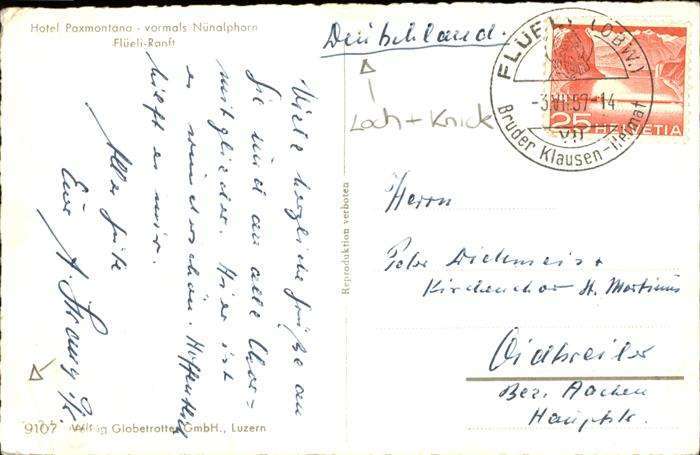 Hotel Paxmontana - vormals Nünalphorn
Flüeli-Ranft
Deutschland.
FLÜELI (OBW.)
-3.VII.57-14
VII
Bruder Klausen-Heimat
25 HELVETIA
Loch + Knick
Viele herzliche Grüße an
Sie und an alle Chor=
mitglieder. Hier ist
es wunderschön. Hoffentlich
hilft es mir.
Alles Gute
Euer
Reproduktion verboten
Herrn
Peter
Kirchenchor St. Martinus
Oidtweiler
Bez. Aachen
Hauptstr.
9107 Verlag Globetrotter GmbH., Luzern